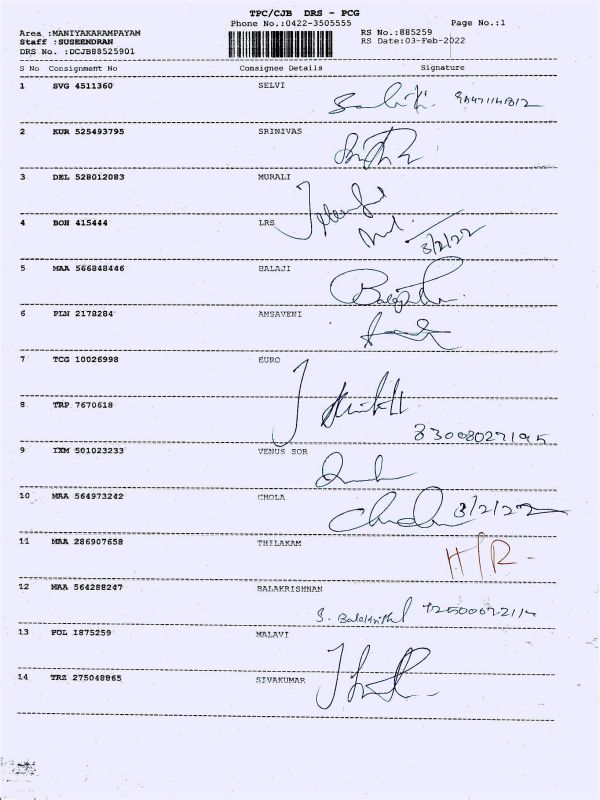 TPC/CJB DRS - PCG
Phone No.:0422-3505555
Page No.:1
Area :MANIYAKARAMPAYAM
RS No.:885259
Staff :SUSEENDRAN
RS Date:03-Feb-2022
DRS No. :DCJB88525901
S No Consignment No Consignee Details Signature
1 SVG 4511360 SELVI
2 KUR 525493795 SRINIVAS
3 DEL 528012083 MURALI
4 BOH 415444 LRS
3/2/22
5 MAA 566848446 BALAJI
6 PLN 2178284 AMSAVENI
7 TCG 10026998 EURO
8 TRP 7670618
9 IXM 501023233 VENUS SOR
10 MAA 564973242 CHOLA
3/2/22
11 MAA 286907658 THILAKAM
12 MAA 564288247 BALAKRISHNAN
13 POL 1875259 MALAVI
14 TRZ 275048865 SIVAKUMAR